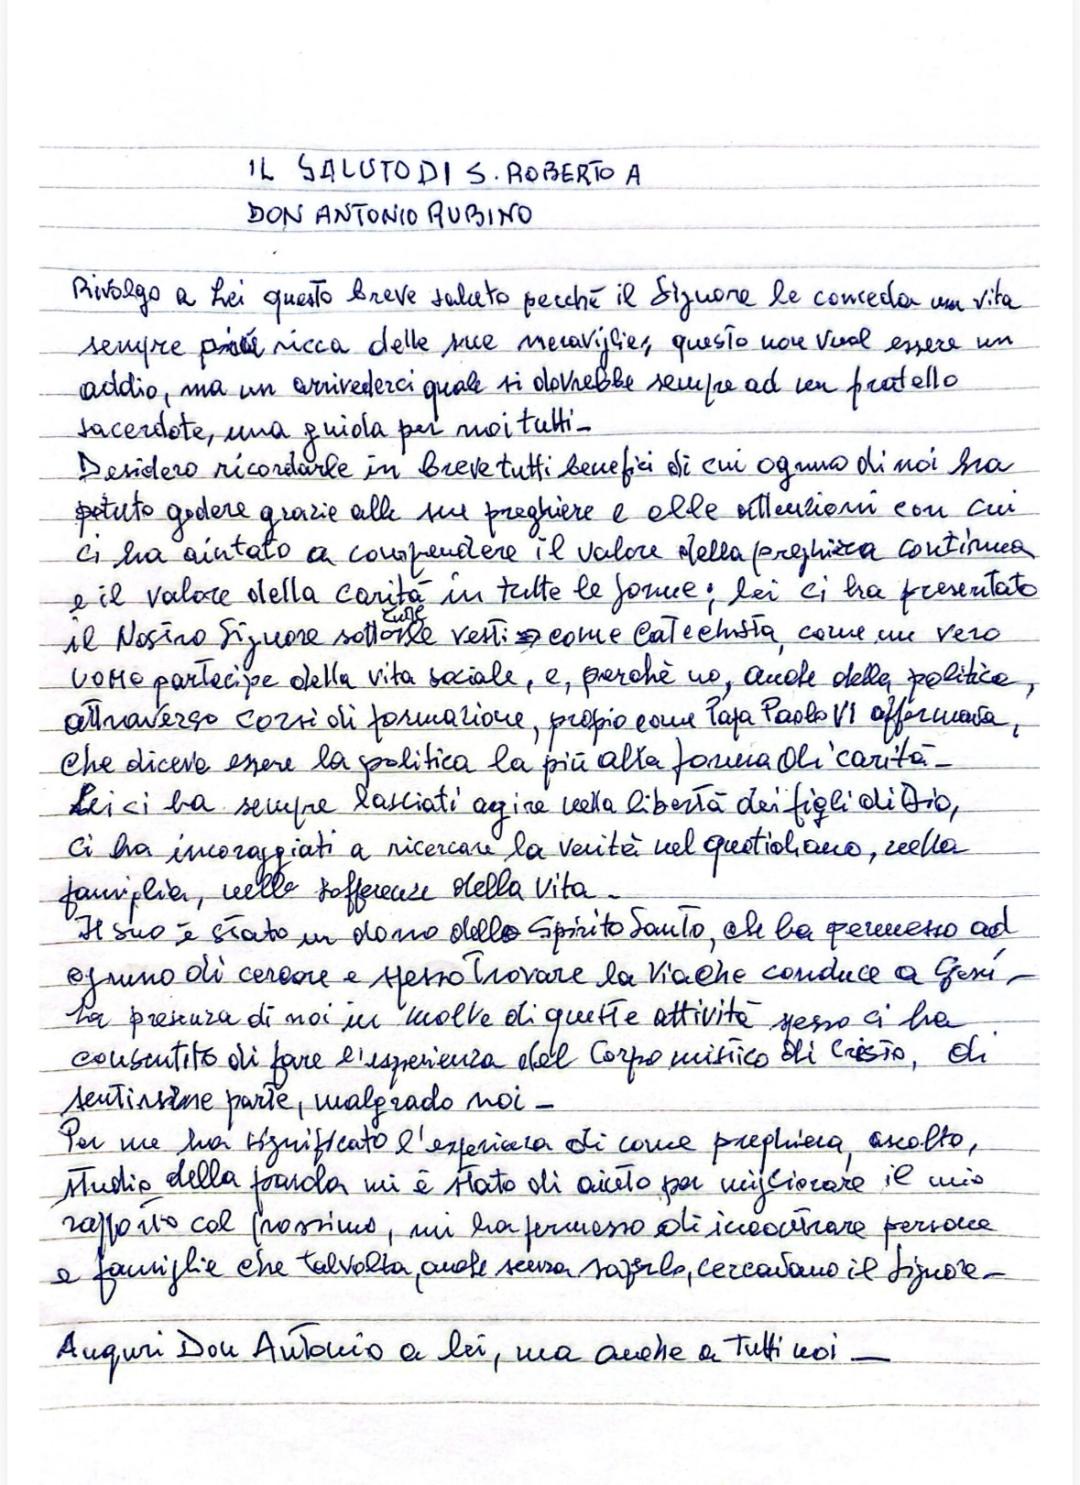 IL SALUTO DI S. ROBERTO A
DON ANTONIO RUBINO
Rivolgo a Lei questo breve saluto perchè il Signore le conceda una vita
sempre più ricca delle sue meraviglie, questo non vuol essere un
addio, ma un arrivederci quale si dovrebbe sempre ad un fratello
sacerdote, una guida per noi tutti-
Desidero ricordarle in breve tutti benefici di cui ognuno di noi ha
potuto godere grazie alle sue preghiere e alle attenzioni con cui
ci ha aiutato a comprendere il valore della preghiera continua
e il valore della carità in tutte le forme; lei ci ha presentato
il Nostro Signore sotto tutte le vesti come Catechista, come un vero
uomo partecipe della vita sociale, e, perchè no, anche della politica,
attraverso corsi di formazione, proprio come Papa Paolo VI affermava,
che diceva essere la politica la più alta forma di carità-
Lei ci ha sempre lasciati agire nella libertà dei figli di Dio,
ci ha incoraggiati a ricercare la verità nel quotidiano, nella
famiglia, nelle sofferenze della vita-
Il suo è stato un dono dello Spirito Santo, che ha permesso ad
ognuno di cercare e spesso trovare la via che conduce a Gesù-
La presenza di noi in molte di queste attività spesso ci ha
consentito di fare l'esperienza del Corpo mistico di Cristo, di
sentirsene parte, malgrado noi-
Per me ha significato l'esperienza di come preghiera, ascolto,
studio della parola mi è stato di aiuto per migliorare il mio
rapporto col prossimo, mi ha permesso di incontrare persone
e famiglie che talvolta, anche senza saperlo, cercavano il Signore-
Auguri Don Antonio a lei, ma anche a tutti noi-